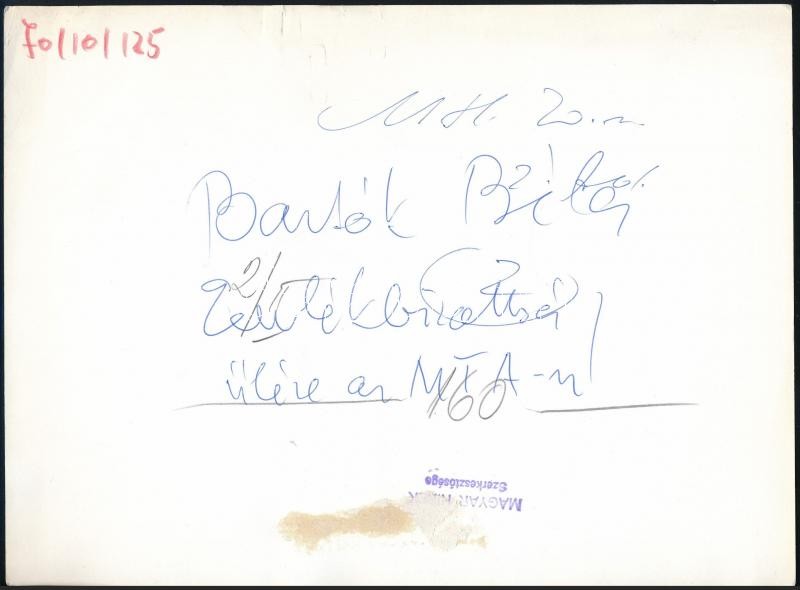 70/10/125
MH. 20.-n
Bartók Béla
2/I
Emlékbizottság
ülése az MTA-n
160
MAGYAR
Szerkesztősége